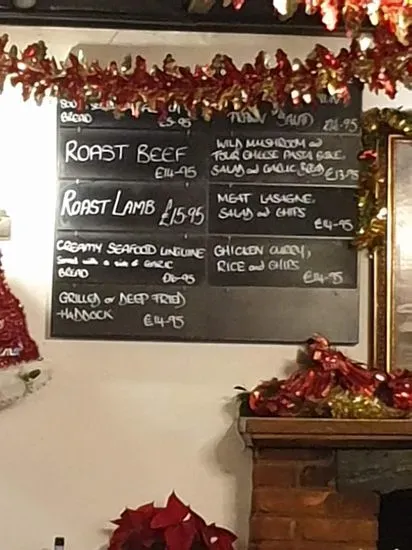 BREAD £5-95
ROAST BEEF
£14-95
ROAST LAMB £15.95
CREAMY SEAFOOD LINGUINE
Served with a side of GARLIC
BREAD £16-95
GRILLED or DEEP FRIED
HADDOCK £14-95
SALAD £16-95
WILD MUSHROOM and
FOUR CHEESE PASTA BAKE,
SALAD and GARLIC BREAD £13.95
MEAT LASAGNE,
SALAD and CHIPS
£14-95
CHICKEN CURRY,
RICE and CHIPS
£14-95